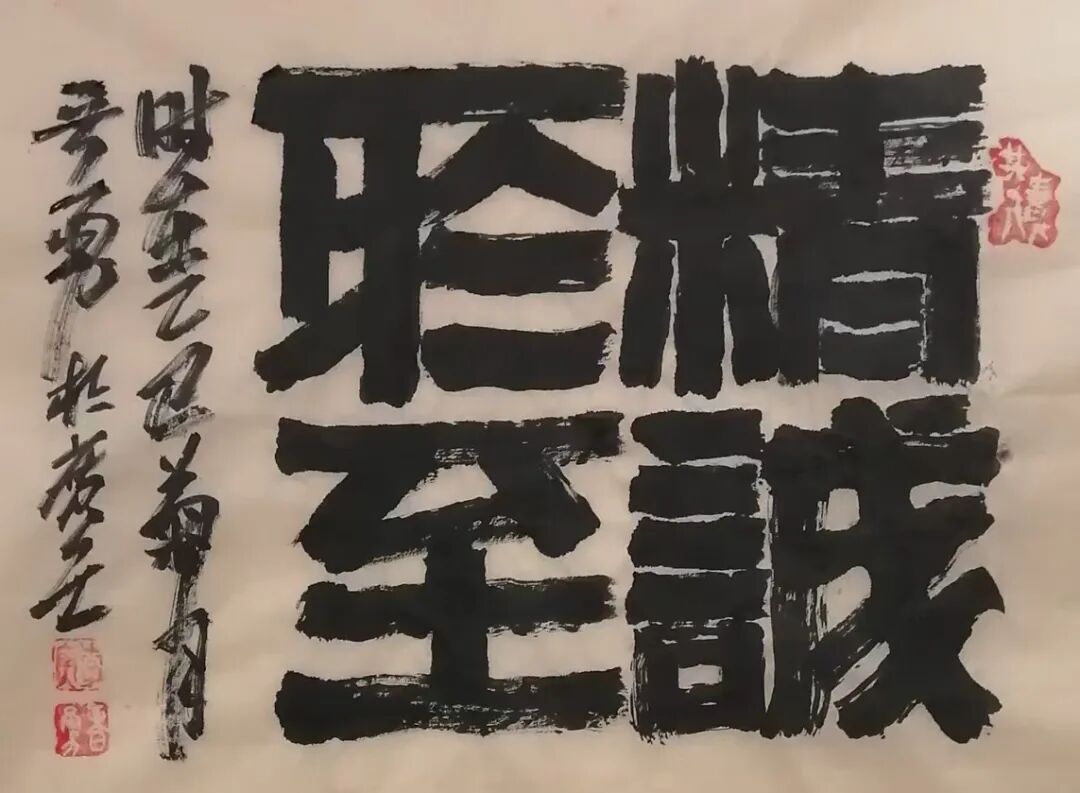 精誠
所至
時在乙巳菊月
勇於